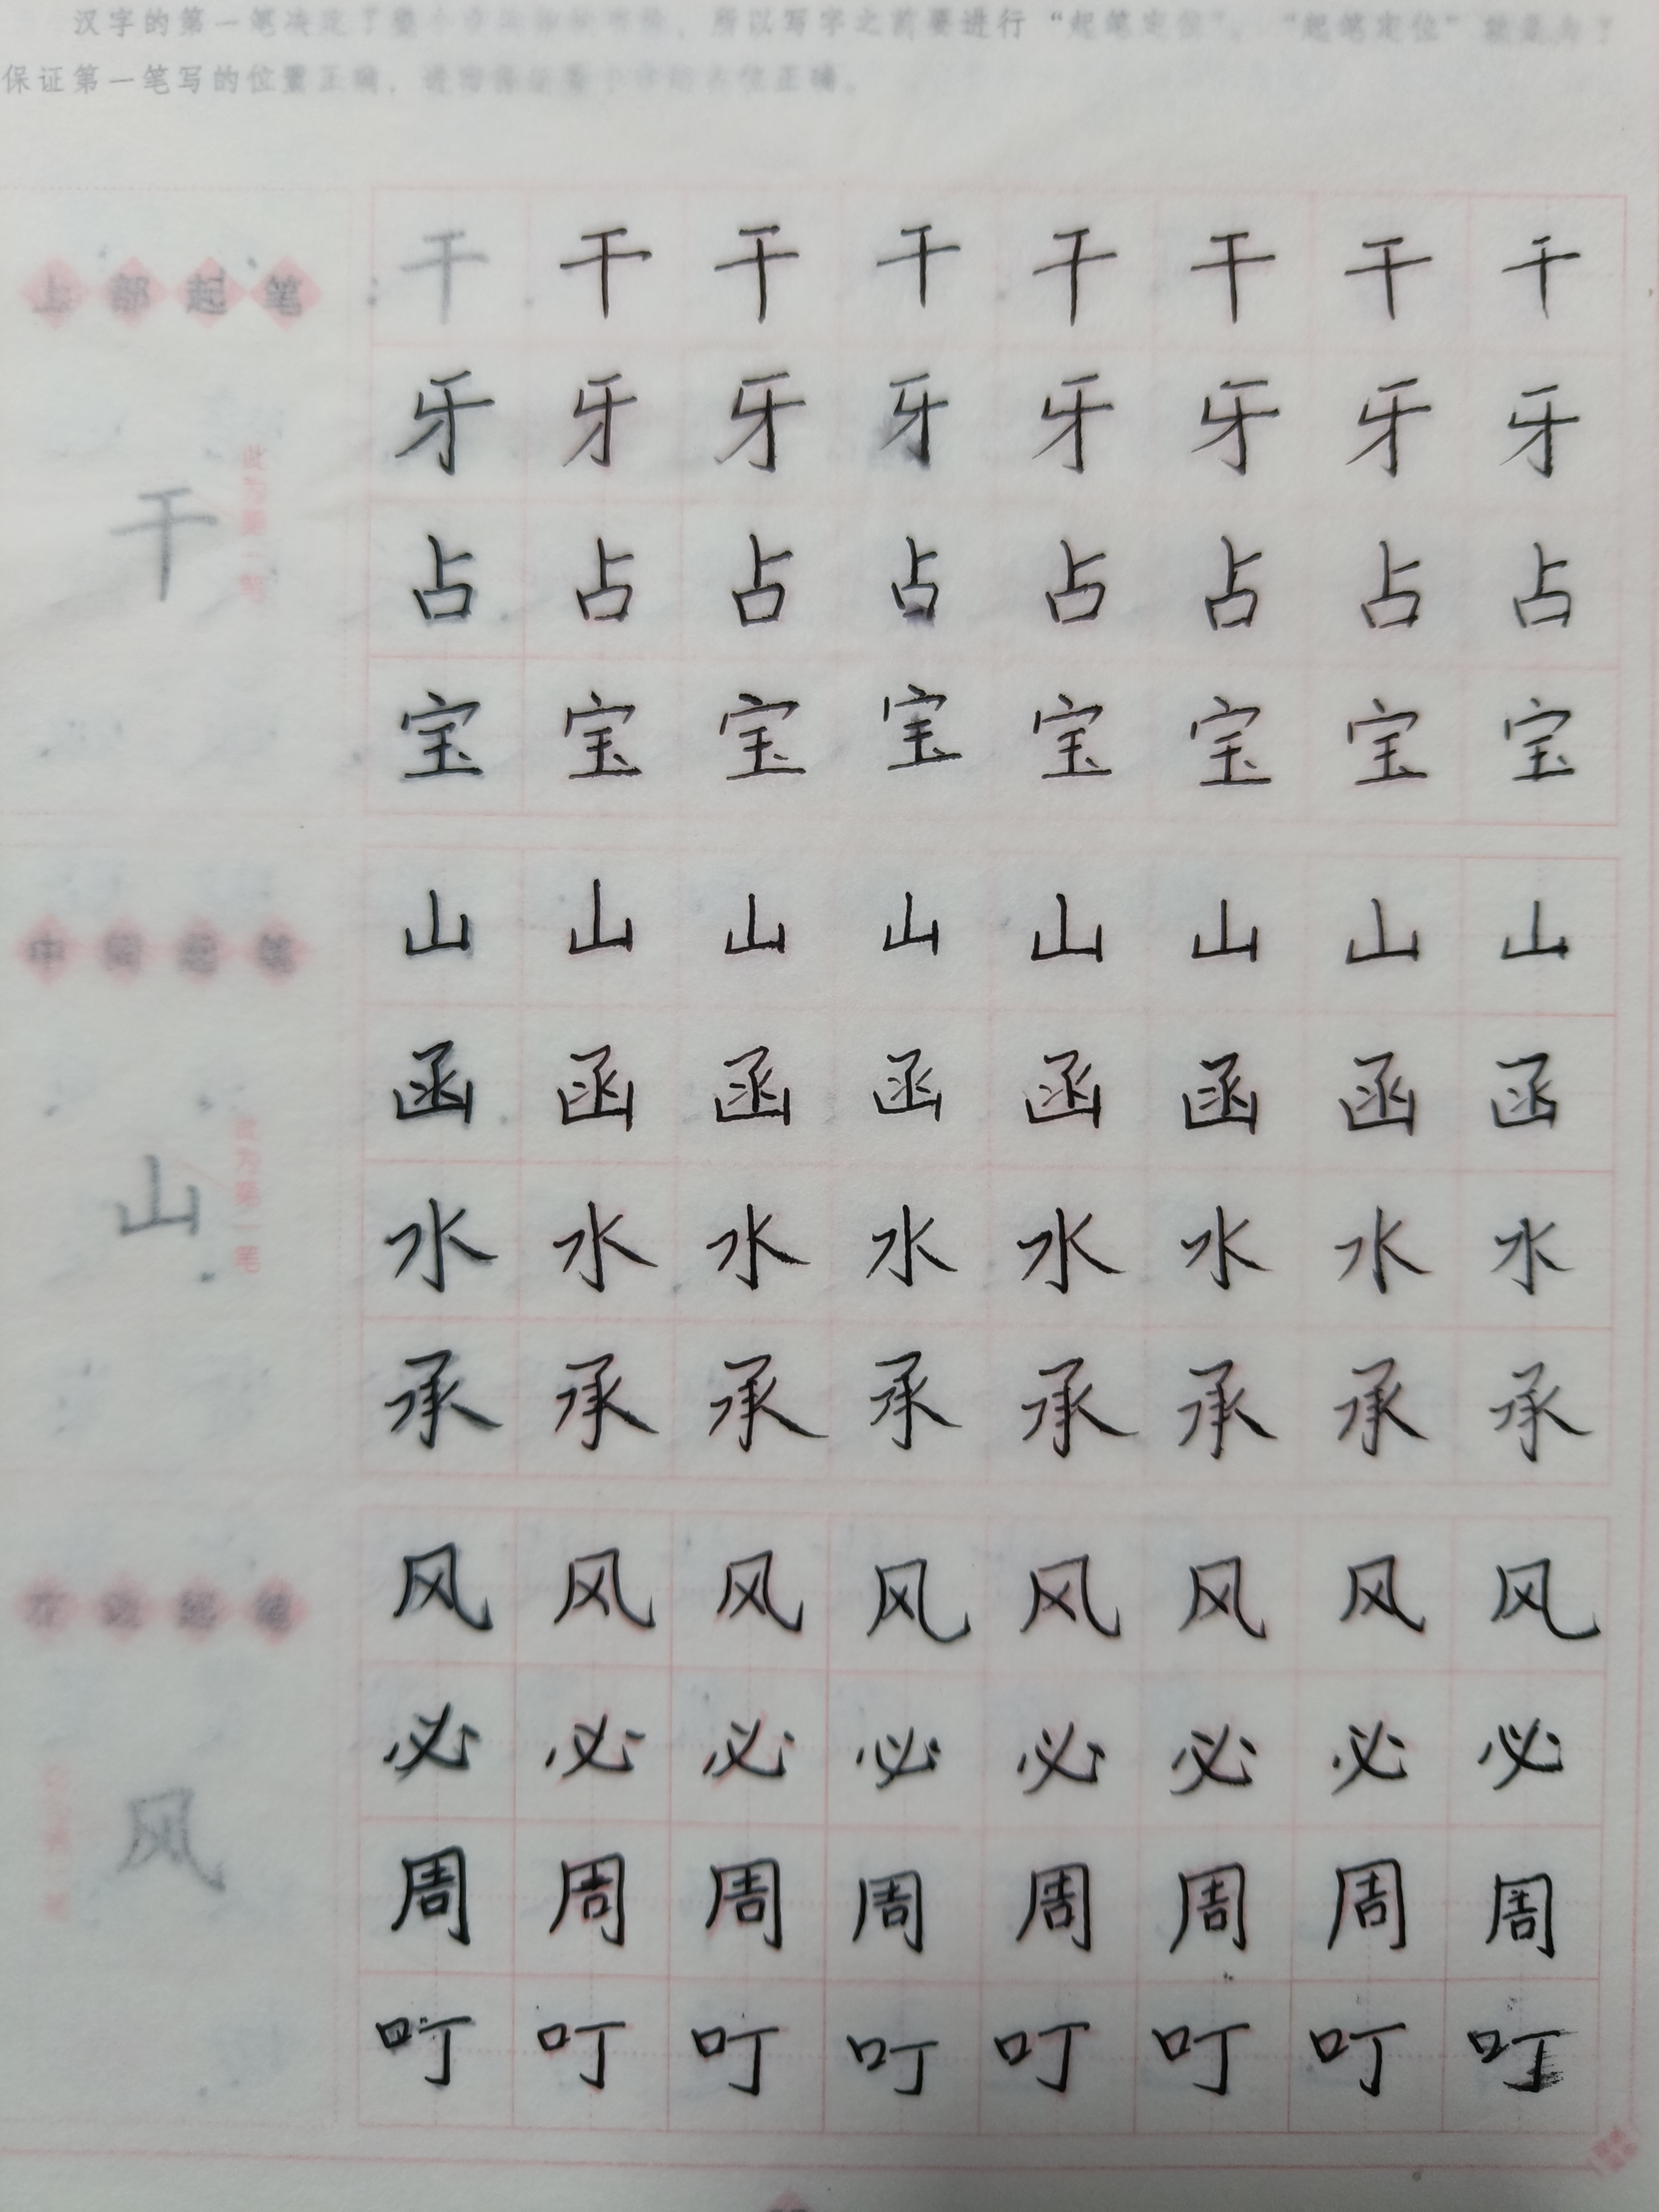 汉字的第一笔决定了整个字的
所以写字之前要进行“起笔定位”。“起笔定位”就是为了
保证第一笔写的位置正确，
位正确。
上部起笔
干 干 干 干 干 干 干 干
牙 牙 牙 牙 牙 牙 牙 牙
干
此为第一笔
占 占 占 占 占 占 占 占
宝 宝 宝 宝 宝 宝 宝 宝
中间起笔
山 山 山 山 山 山 山 山
函 函 函 函 函 函 函 函
山
此为第一笔
水 水 水 水 水 水 水 水
承 承 承 承 承 承 承 承
左边起笔
风 风 风 风 风 风 风 风
必 必 必 必 必 必 必 必
风
周 周 周 周 周 周 周 周
叮 叮 叮 叮 叮 叮 叮 叮